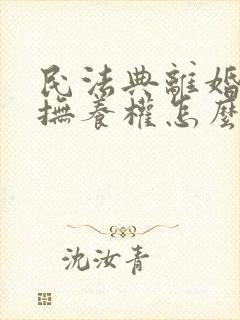 民法典離婚
撫養權怎麼
沈汝青